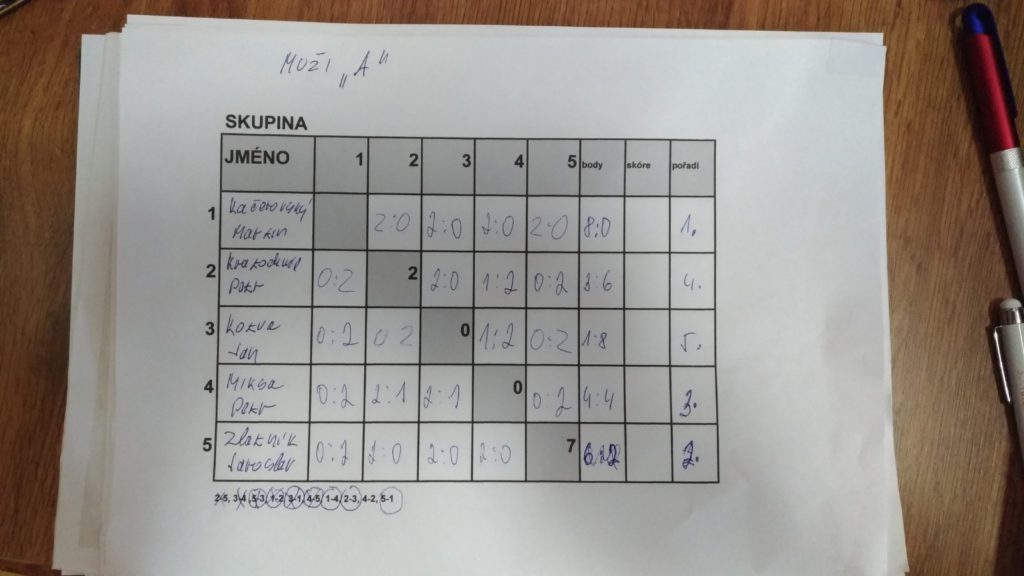 MUŽI „A"
SKUPINA
JMÉNO 1 2 3 4 5 body skóre pořadí
1 Martin 2:0 2:0 2:0 2:0 8:0 1.
2 Petr 0:2 2 2:0 1:2 0:2 3:6 4.
3 Jan 0:2 0:2 0 1:2 0:2 1:8 5.
4 Miksa Petr 0:2 2:1 2:1 0 0:2 4:4 3.
5 Jaroslav 0:2 2:0 2:0 2:0 7 2.
2-5, 3-4, 5-3, 1-2, 3-1, 4-5, 1-4, 2-3, 4-2, 5-1